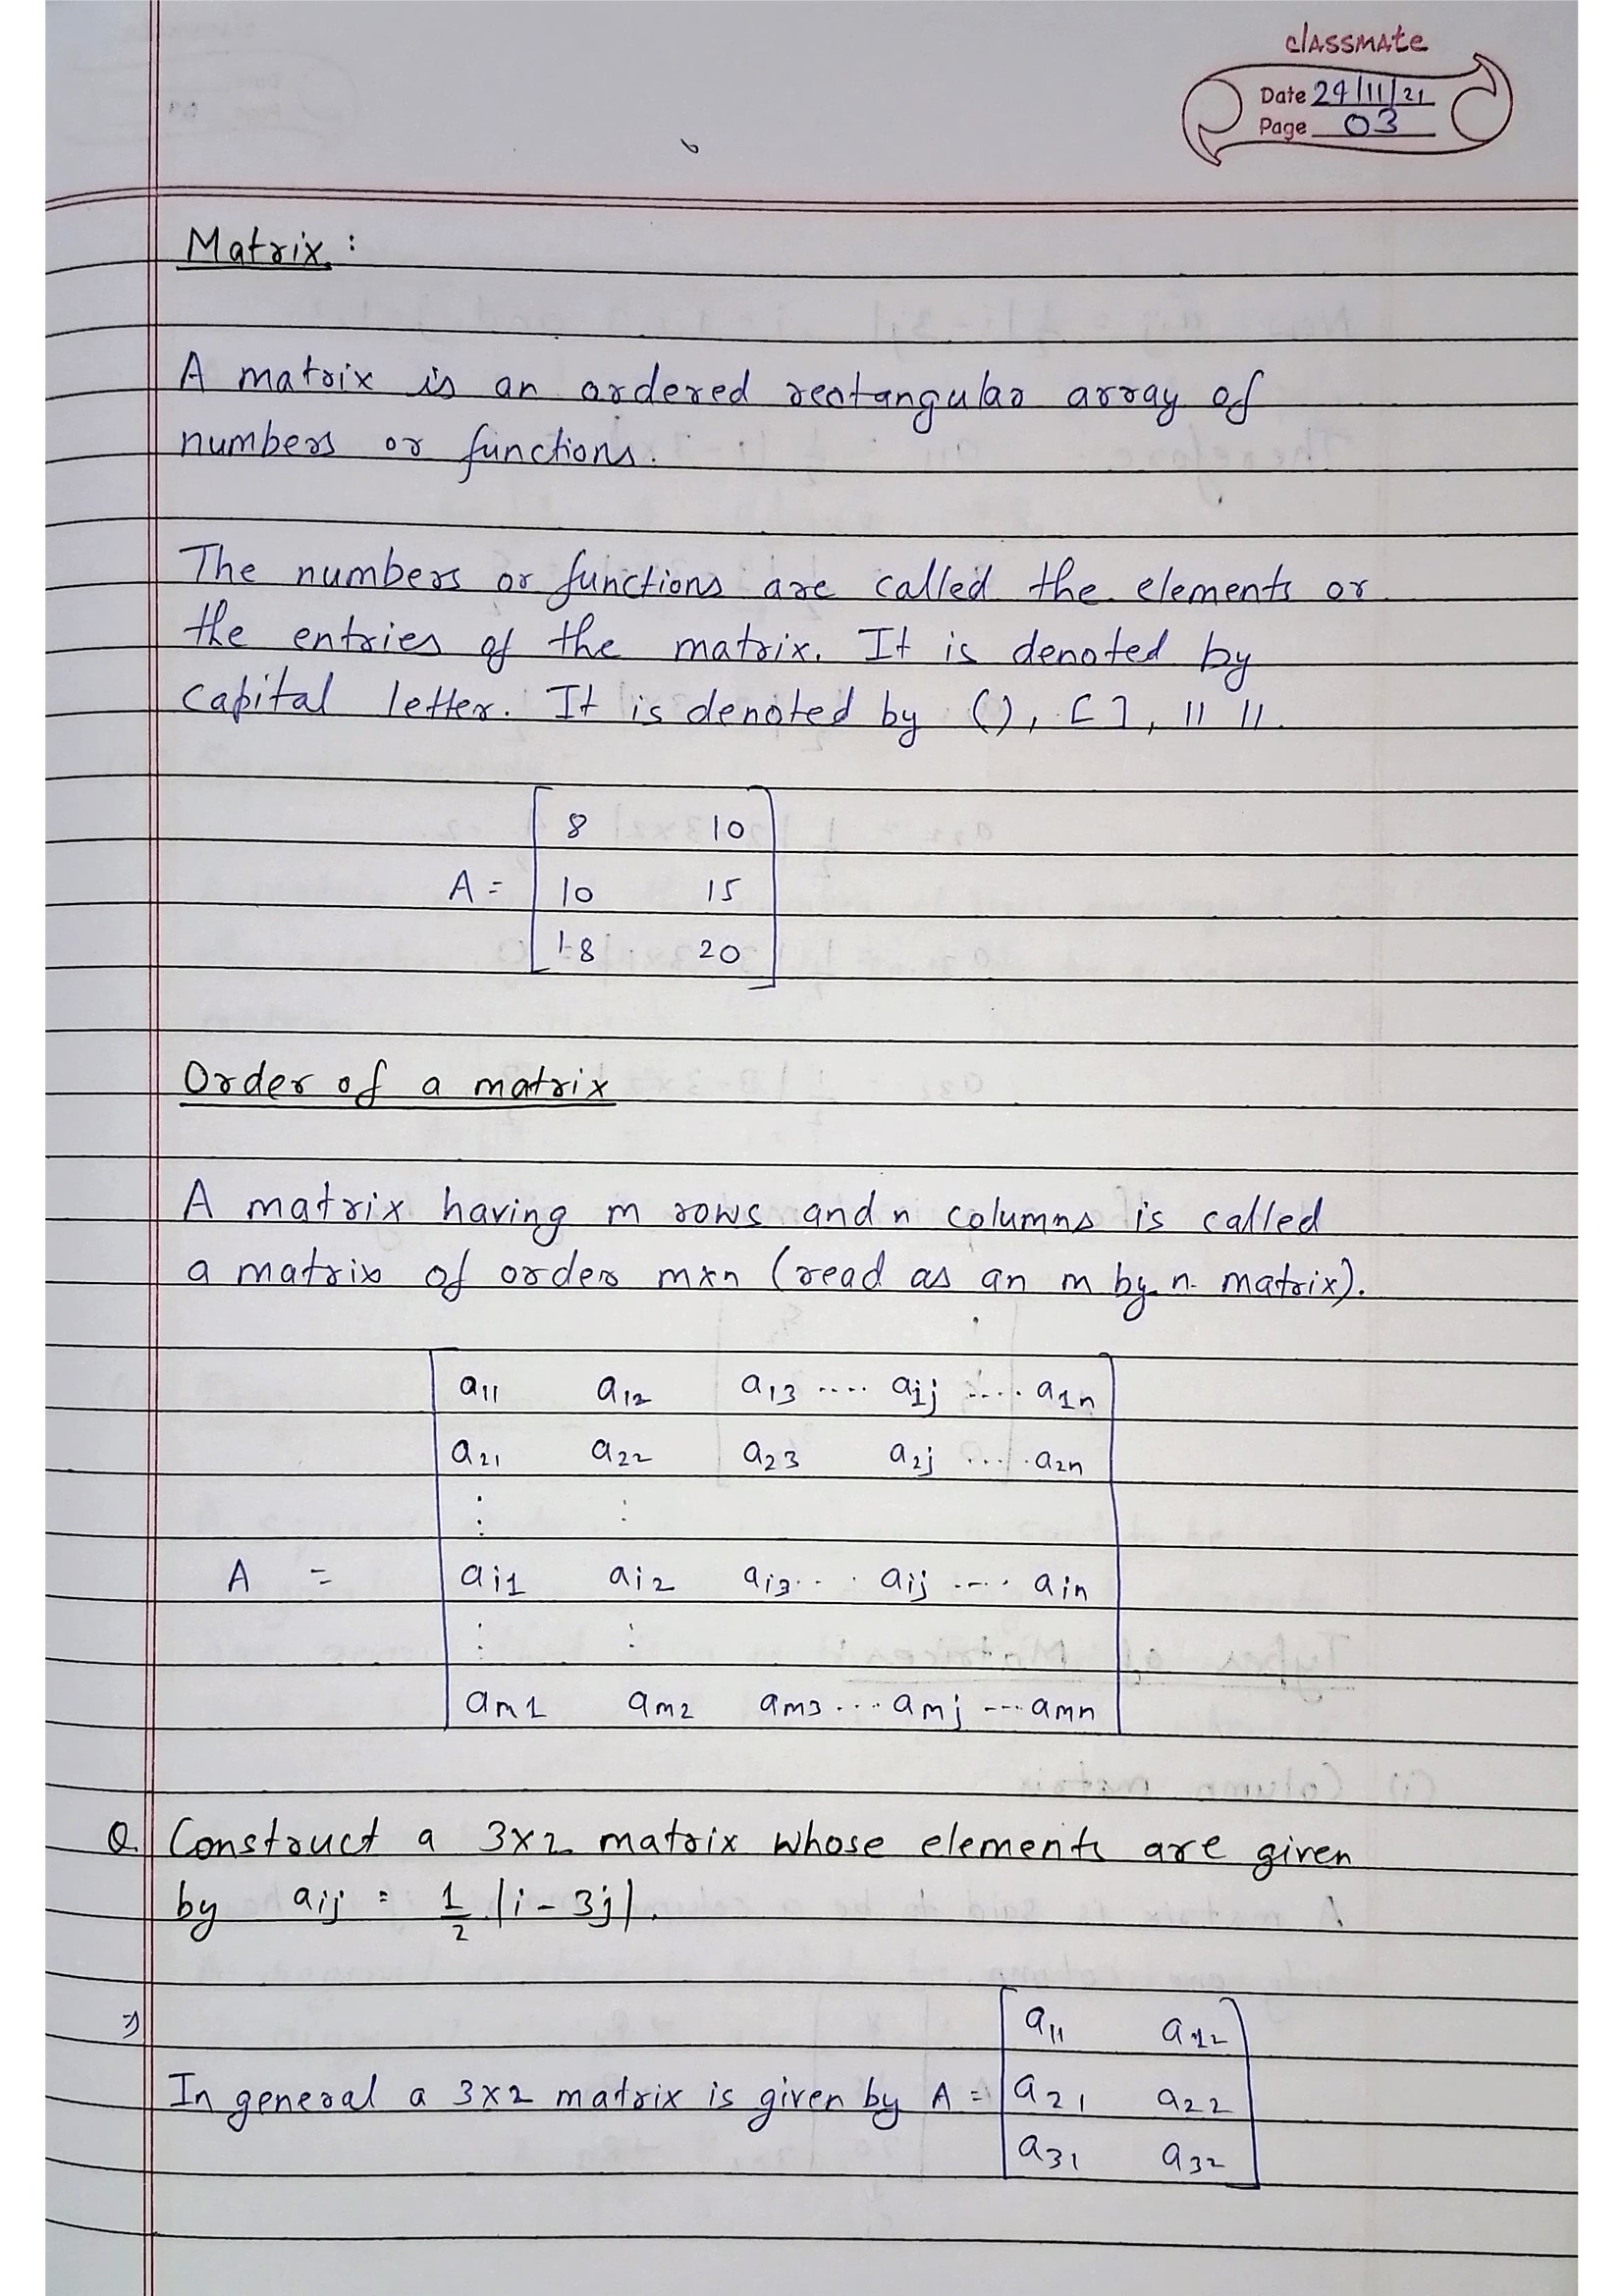 classmate
Date 24/11/21
Page 03
Matrix:
A matrix is an ordered rectangular array of
numbers or functions.
The numbers or functions are called the elements or
the entries of the matrix. It is denoted by
capital letter. It is denoted by (), [ ], || ||.
8 10
A = 10 15
18 20
Order of a matrix
A matrix having m rows and n columns is called
a matrix of order m×n (read as an m by n matrix).
a11 a12 a13 .... aij .... a1n
a21 a22 a23 a2j .... a2n
: :
A = ai1 ai2 ai3... aij .... ain
: :
am1 am2 am3... amj ... amn
Q. Construct a 3×2 matrix whose elements are given
by aij = 1/2 |i - 3j|.
⇒ a11 a12
In general a 3×2 matrix is given by A = a21 a22
a31 a32